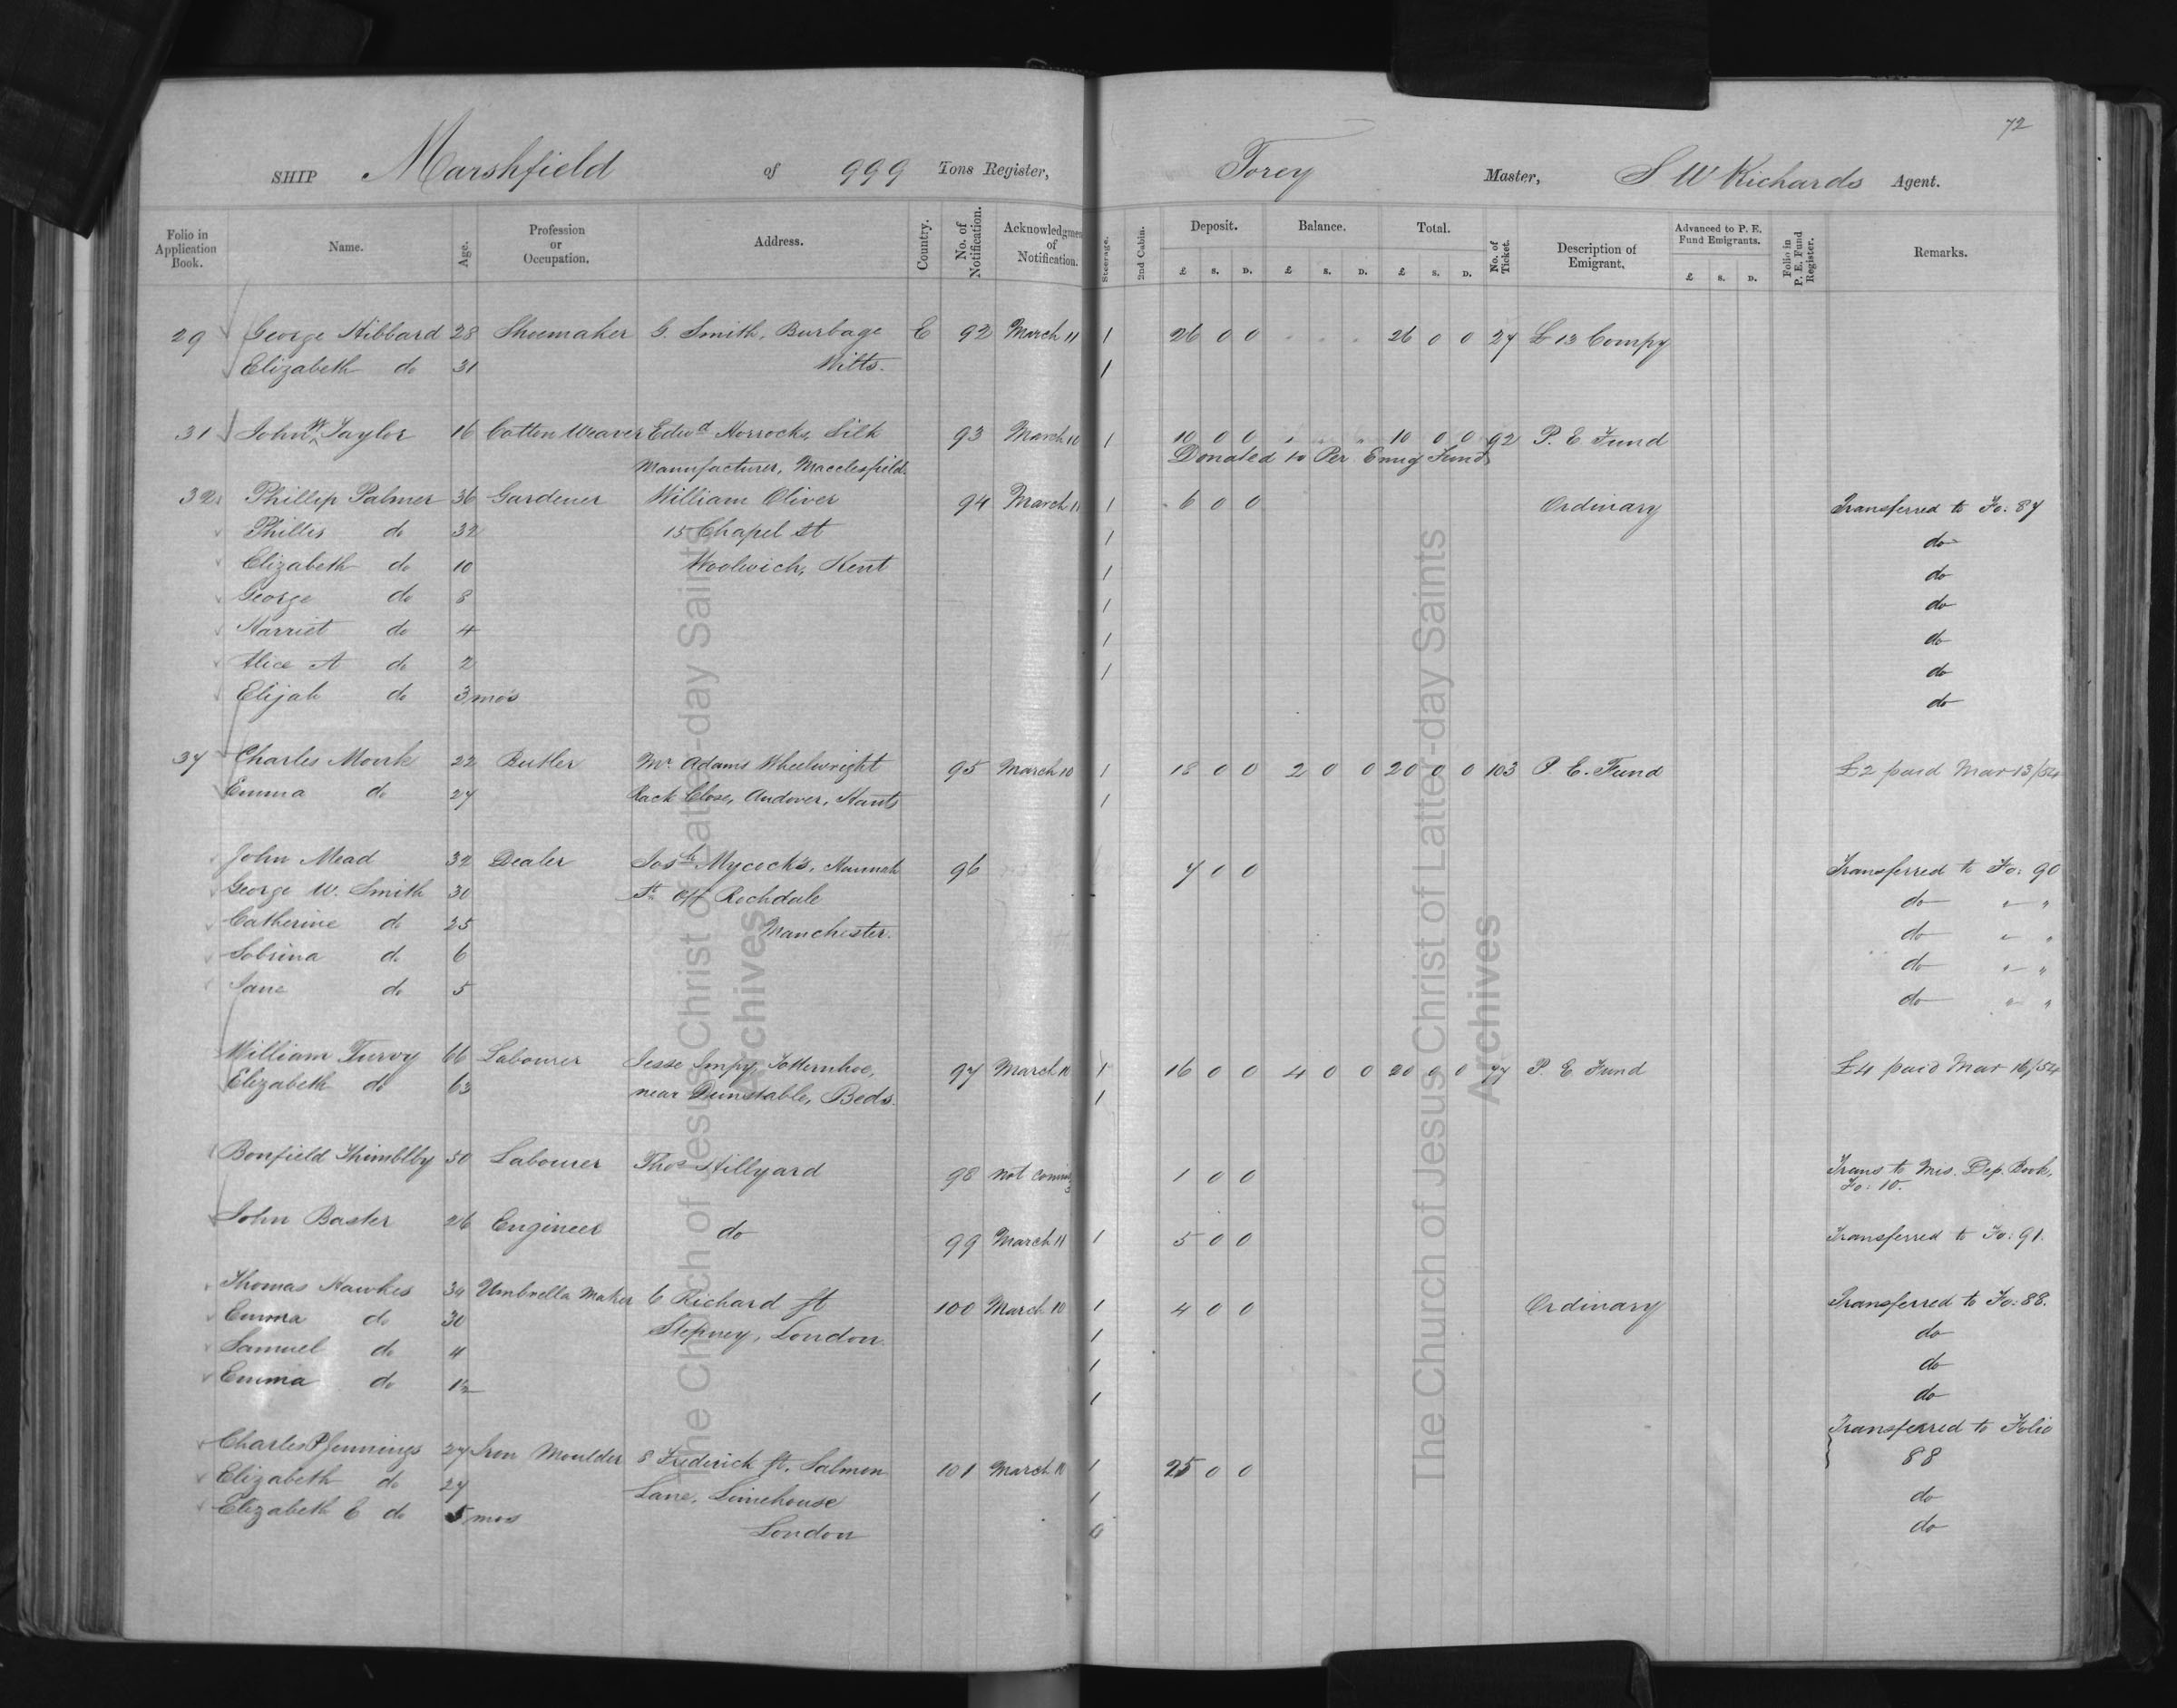 72
SHIP Marshfield of 999 Tons Register, Torey Master, S W Richards Agent.
Folio in Application Book. Name. Age. Profession or Occupation. Address. Country. No. of Notification. Acknowledgment of Notification. Steerage. 2nd Cabin. Deposit. Balance. Total. No. of Ticket. Description of Emigrant. Advanced to P. E. Fund Emigrants. Folio in P. E. Fund Register. Remarks.
£ S. D. £ S. D. £ S. D. £ S. D.
29 George Hibbard 28 Shoemaker G. Smith, Burbage E 92 March 11 1 26 0 0 26 0 0 27 £13 Compy
Elizabeth do 31 Wilts. 1
31 John W Taylor 16 Cotton Weaver Edwd Horrocks, Silk 93 March 10 1 10 0 0 10 0 0 92 P. E Fund
Manufacturer, Macclesfield Donated to Per. Emig Fund
32 Phillip Palmer 36 Gardener William Oliver 94 March 11 1 6 0 0 Ordinary Transferred to Fo: 87
Phillis do 32 15 Chapel St 1 do
Elizabeth do 10 Woolwich, Kent 1 do
George do 8 1 do
Harriet do 4 1 do
Alice A do 2 1 do
Elijah do 3 mos do
37 Charles Monk 22 Butler Mr. Adams Wheelwright 95 March 10 1 18 0 0 2 0 0 20 0 0 103 P. E. Fund £2 paid Mar 13/54
Emma do 27 Rack Close, Andover, Hants 1
John Mead 32 Dealer Josh Mycock's, Hannah 96 7 0 0 Transferred to Fo: 90
George W. Smith 30 St off Rochdale do " "
Catherine do 25 Manchester. do " "
Sobrina do 6 do " "
Jane do 5 do " "
William Turvy 66 Labourer Jesse Impy, Totternhoe, 97 March 10 1 16 0 0 4 0 0 20 0 0 77 P. E Fund £4 paid Mar 16/54
Elizabeth do 63 near Dunstable, Beds. 1
Bonfield Thimblby 50 Labourer Thos Hillyard 98 not coming 1 0 0 Trans to Mis. Dep. Book,
Fo: 10.
John Baster 26 Engineer do 99 March 11 1 5 0 0 Transferred to Fo: 91.
Thomas Hawkes 34 Umbrella Maker 6 Richard St 100 March 10 1 4 0 0 Ordinary Transferred to Fo: 88.
Emma do 30 Stepney, London. 1 do
Samuel do 4 1 do
Emma do 1 1 do
Charles P Jennings 27 Iron Moulder 8 Frederick St. Salmon 101 March 11 1 25 0 0 Transferred to Folio 88
Elizabeth do 27 Lane, Limehouse 1 do
Elizabeth E do 5 mos London 0 do
The Church of Jesus Christ of Latter-day Saints
Archives
The Church of Jesus Christ of Latter-day Saints
Archives